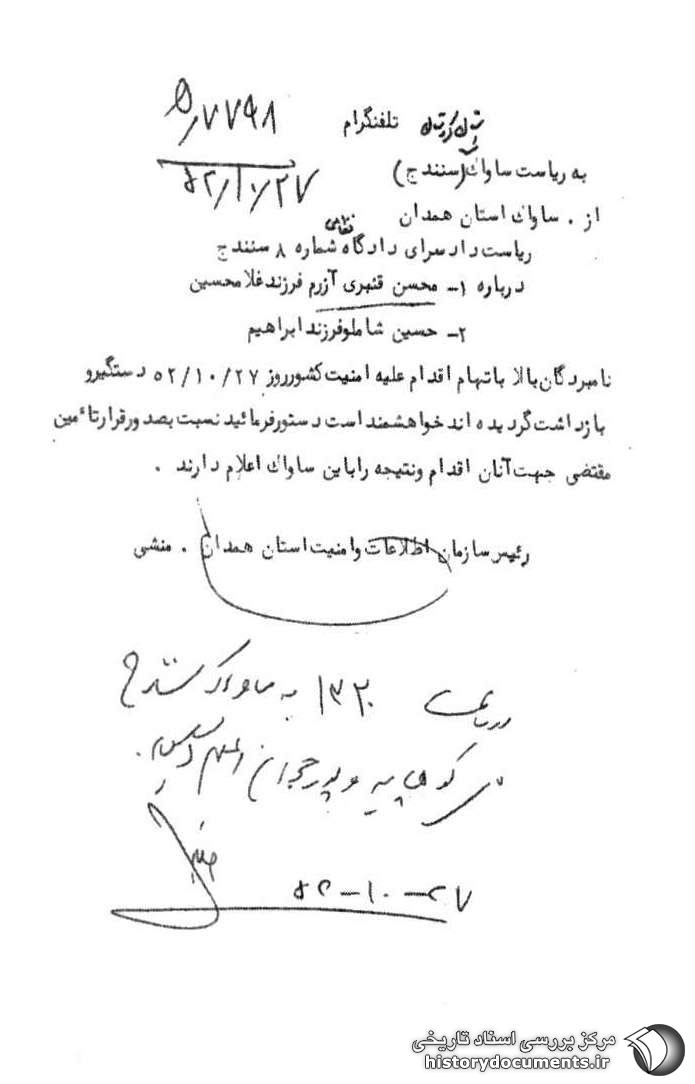 ۵/۷۷۹۸
۵۲/۱۰/۲۷
تلفنگرام
به ریاست ساواک (سنندج)
از . ساواک استان همدان
ریاست دادسرای دادگاه نظامی شماره ۸ سنندج
درباره ۱- محسن قنبری آزرم فرزند غلامحسین
۲- حسین شاملو فرزند ابراهیم
نامبردگان بالا باتهام اقدام علیه امنیت کشور روز ۵۲/۱۰/۲۷ دستگیر و
بازداشت گردیده اند خواهشمند است دستور فرمائید نسبت بصدور قرار تأمین
مقتضی جهت آنان اقدام و نتیجه را باین ساواک اعلام دارند .
رئیس سازمان اطلاعات و امنیت استان همدان . منشی
۱۳۲۰ به ساواک سنندج
۵۲-۱۰-۲۷
مرکز بررسی اسناد تاریخی
historydocuments.ir